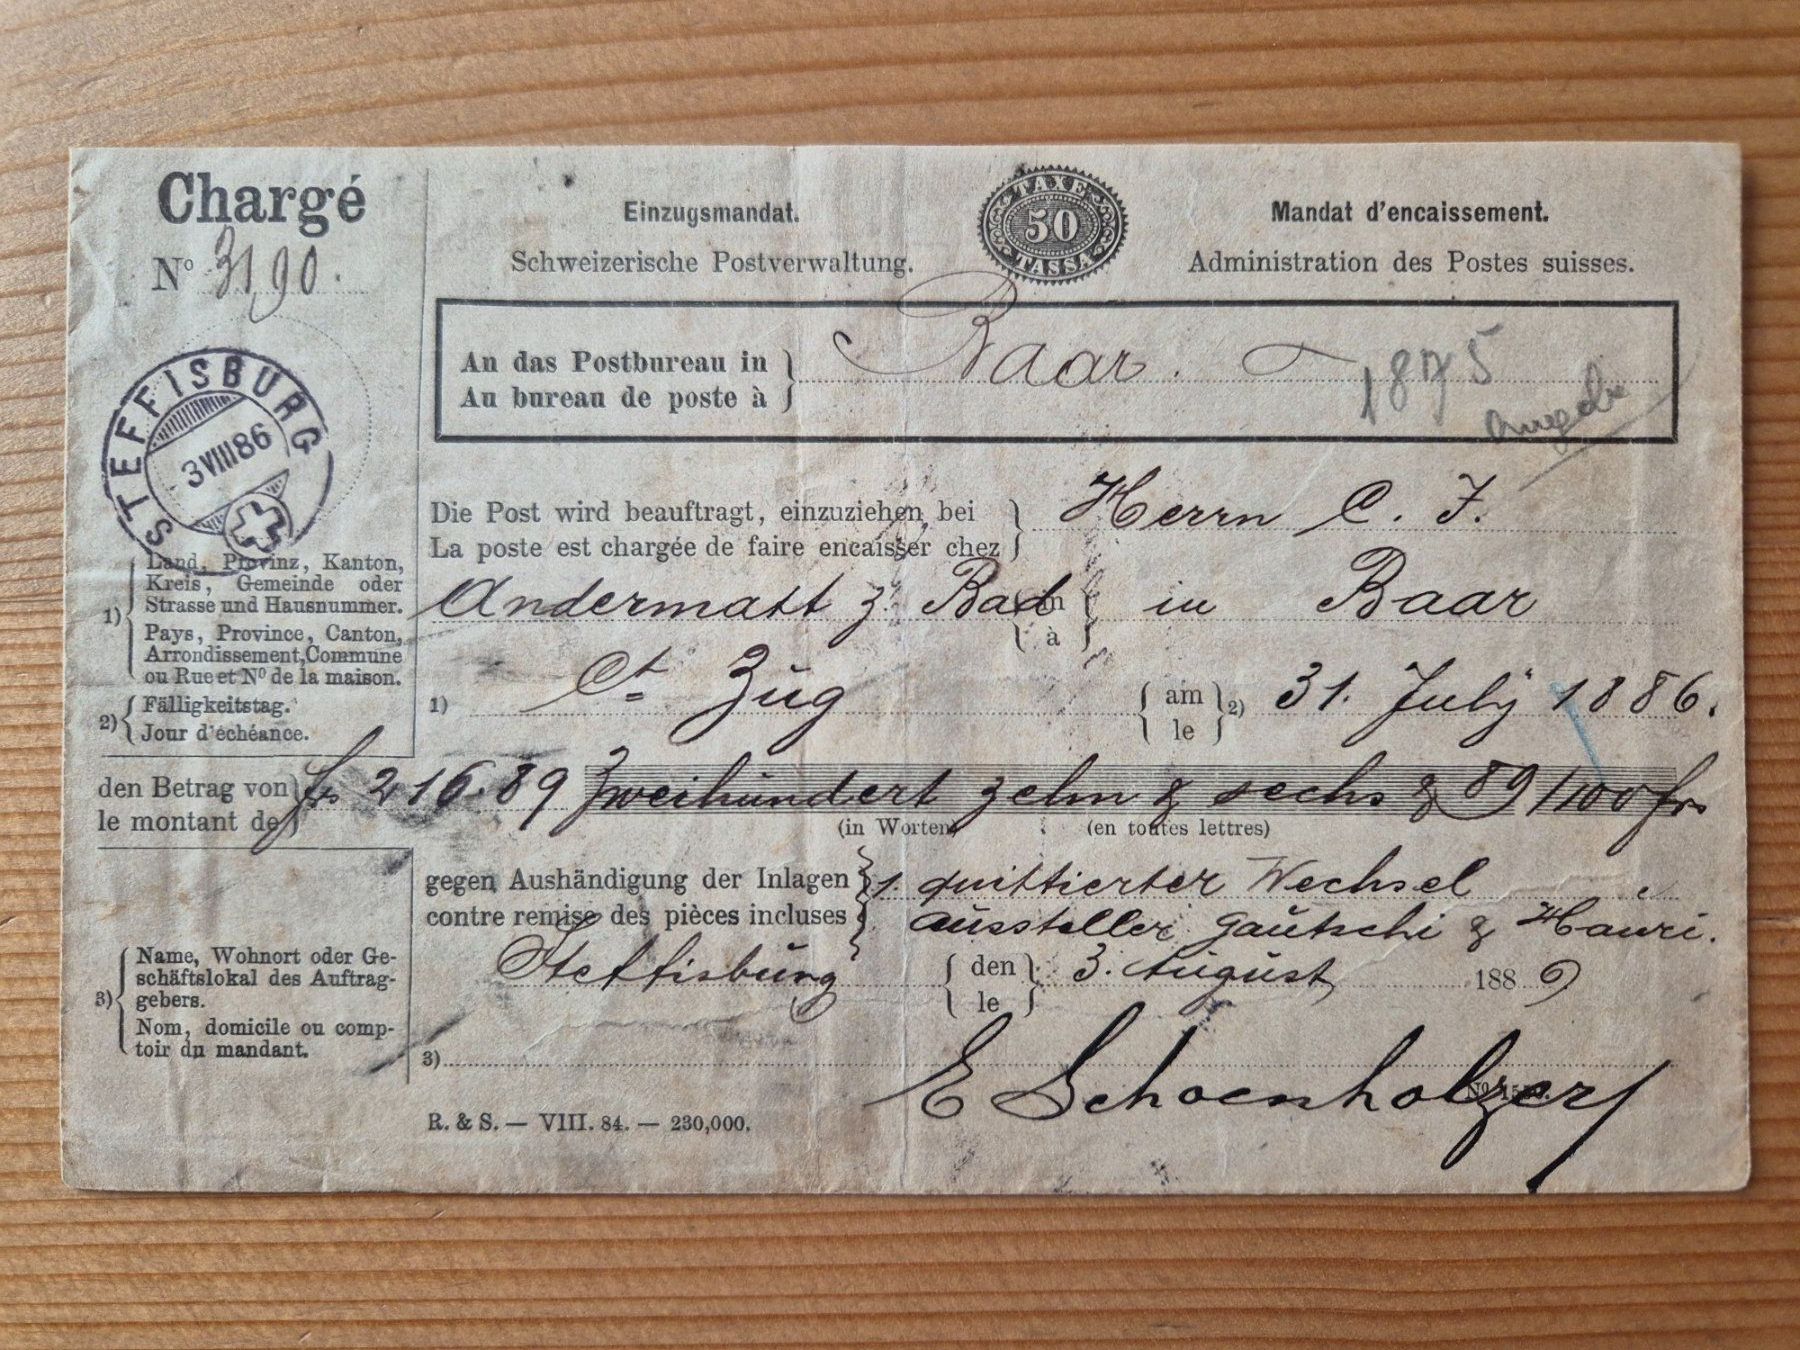 Chargé
Nº 3190.
Einzugsmandat.
Schweizerische Postverwaltung.
TAXE
50
TASSA
Mandat d'encaissement.
Administration des Postes suisses.
STEFFISBURG
3 VIII 86
An das Postbureau in
Au bureau de poste à
Baar.
1875
Ausgabe
Die Post wird beauftragt, einzuziehen bei
La poste est chargée de faire encaisser chez
Herrn C. J.
Andermatt z. Bad in à in Baar
1) Ct Zug am le 2) 31. July 1886.
1) Land, Provinz, Kanton,
Kreis, Gemeinde oder
Strasse und Hausnummer.
Pays, Province, Canton,
Arrondissement, Commune
ou Rue et Nº de la maison.
2) Fälligkeitstag.
Jour d'échéance.
den Betrag von
le montant de
frs 216.89 Zweihundert zehn & sechs & 89/100 frs
(in Worten) (en toutes lettres)
gegen Aushändigung der Inlagen
contre remise des pièces incluses
1. quittierter Wechsel
aussteller Gautschi & Hauri.
Steffisburg den le 3. August 1886
3) Name, Wohnort oder Ge-
schäftslokal des Auftrag-
gebers.
Nom, domicile ou comp-
toir du mandant.
3) E Schoenholzer
R. & S. — VIII. 84. — 230,000.